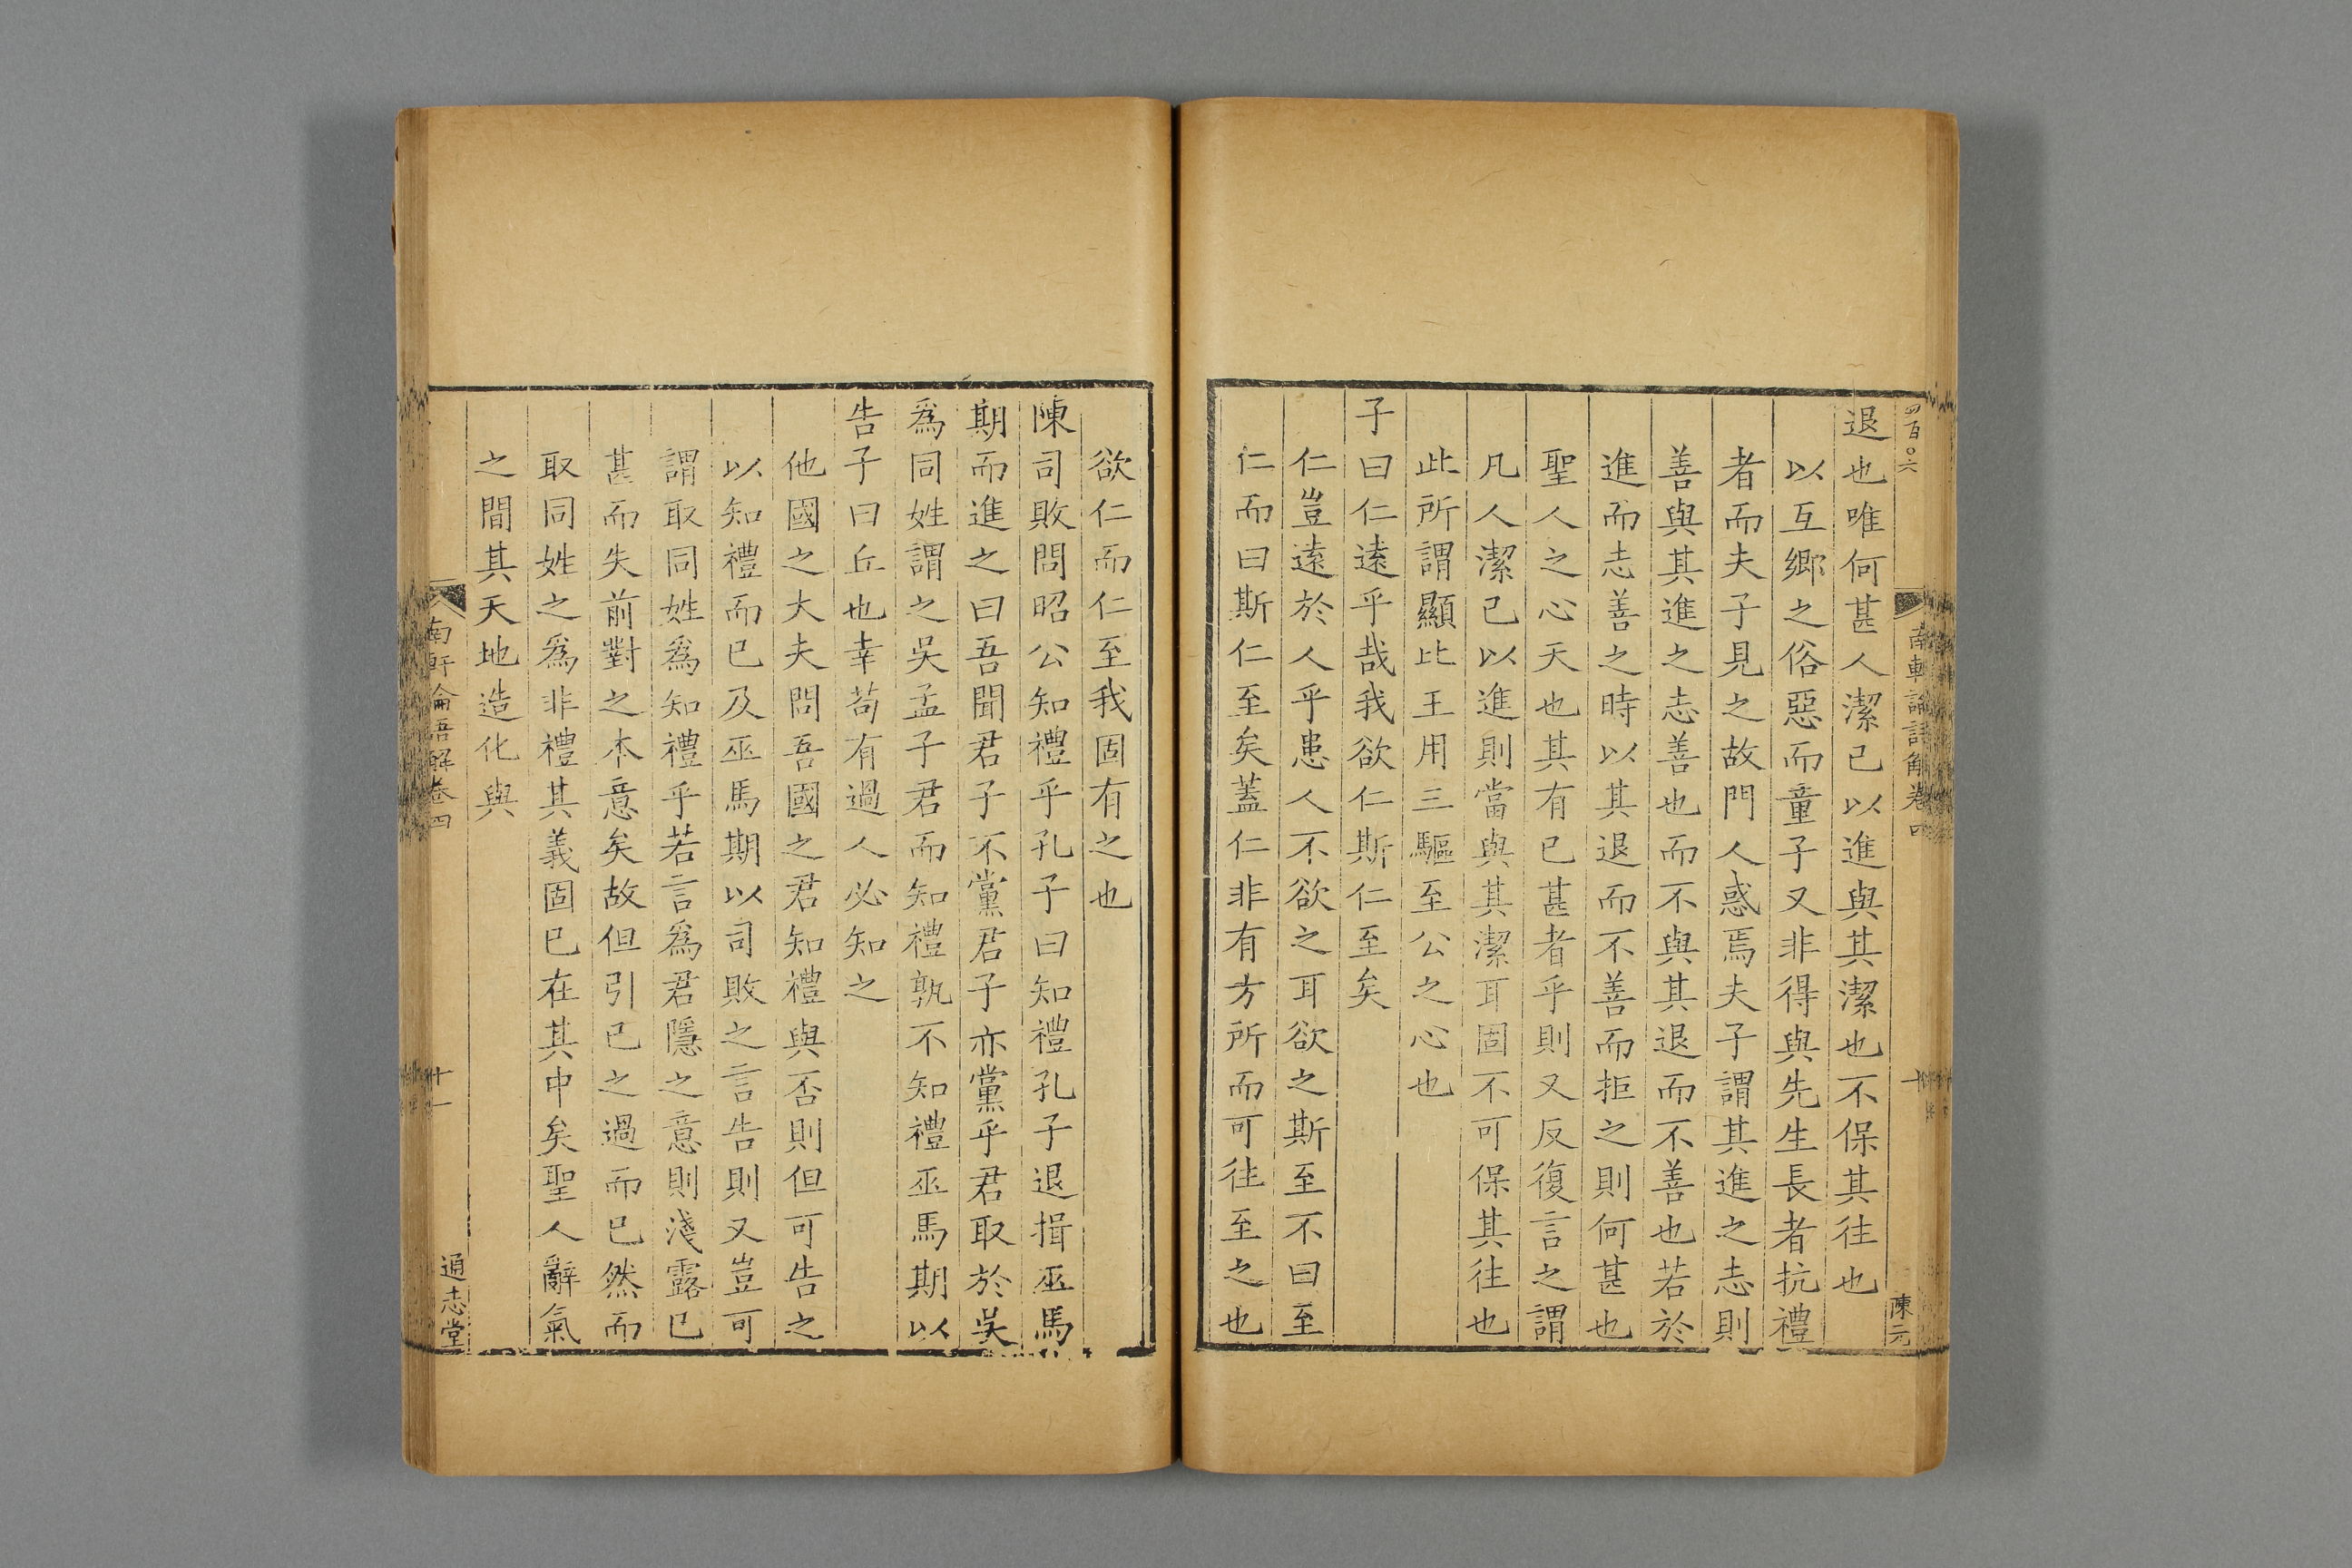 四百〇六
南軒論語解卷四
十
陳元
退也唯何甚人潔已以進與其潔也不保其往也
以互鄉之俗惡而童子又非得與先生長者抗禮
者而夫子見之故門人惑焉夫子謂其進之志則
善與其進之志善也而不與其退而不善也若於
進而志善之時以其退而不善而拒之則何甚也
聖人之心天也其有已甚者乎則又反復言之謂
凡人潔已以進則當與其潔耳固不可保其往也
此所謂顯比王用三驅至公之心也
子曰仁遠乎哉我欲仁斯仁至矣
仁豈遠於人乎患人不欲之耳欲之斯至不曰至
仁而曰斯仁至矣蓋仁非有方所而可往至之也
欲仁而仁至我固有之也
陳司敗問昭公知禮乎孔子曰知禮孔子退揖巫馬
期而進之曰吾聞君子不黨君子亦黨乎君取於吳
爲同姓謂之吳孟子君而知禮孰不知禮巫馬期以
告子曰丘也幸苟有過人必知之
他國之大夫問吾國之君知禮與否則但可告之
以知禮而已及巫馬期以司敗之言告則又豈可
謂取同姓爲知禮乎若言爲君隱之意則淺露已
甚而失前對之本意矣故但引已之過而已然而
取同姓之爲非禮其義固已在其中矣聖人辭氣
之間其天地造化與
南軒論語解卷四
十一
通志堂